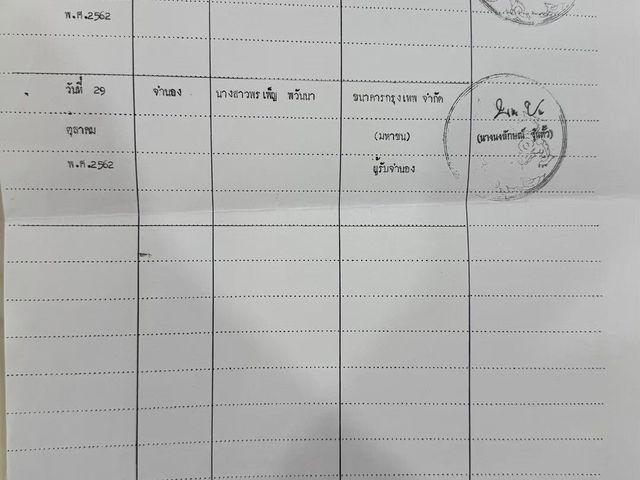 พ.ศ.2562
วันที่ 29 จำนอง นางสาวพรเพ็ญ พวันนา ธนาคารกรุงเทพ จำกัด
ตุลาคม (มหาชน) (นางนงลักษณ์
พ.ศ.2562 ผู้รับจำนอง